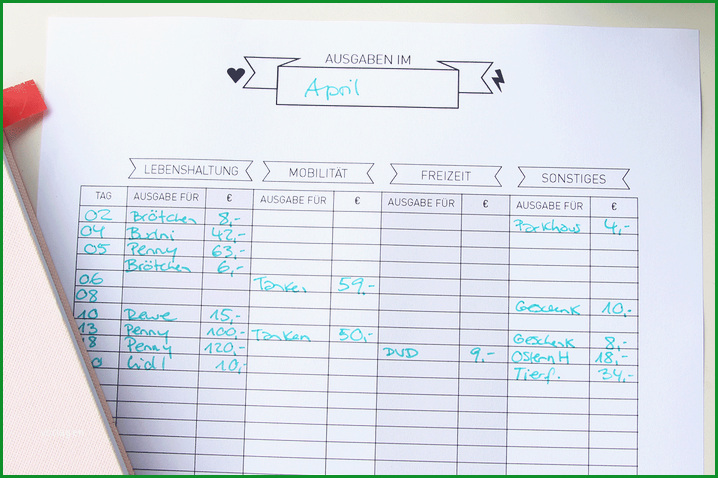 AUSGABEN IM
April
LEBENSHALTUNG MOBILITÄT FREIZEIT SONSTIGES
TAG AUSGABE FÜR € AUSGABE FÜR € AUSGABE FÜR € AUSGABE FÜR €
02 Brötchen 8,- Parkhaus 4,-
04 42,-
05 Penny 63,-
Brötchen 6,-
06 Tanken 59,-
08 Geschenk 10,-
10 Rewe 15,-
13 Penny 100,- Tanken 50,- Geschenk 8,-
8 Penny 120,- DVD 9,- Ostern H 18,-
0 Lidl 10,- Tierf. 34,-